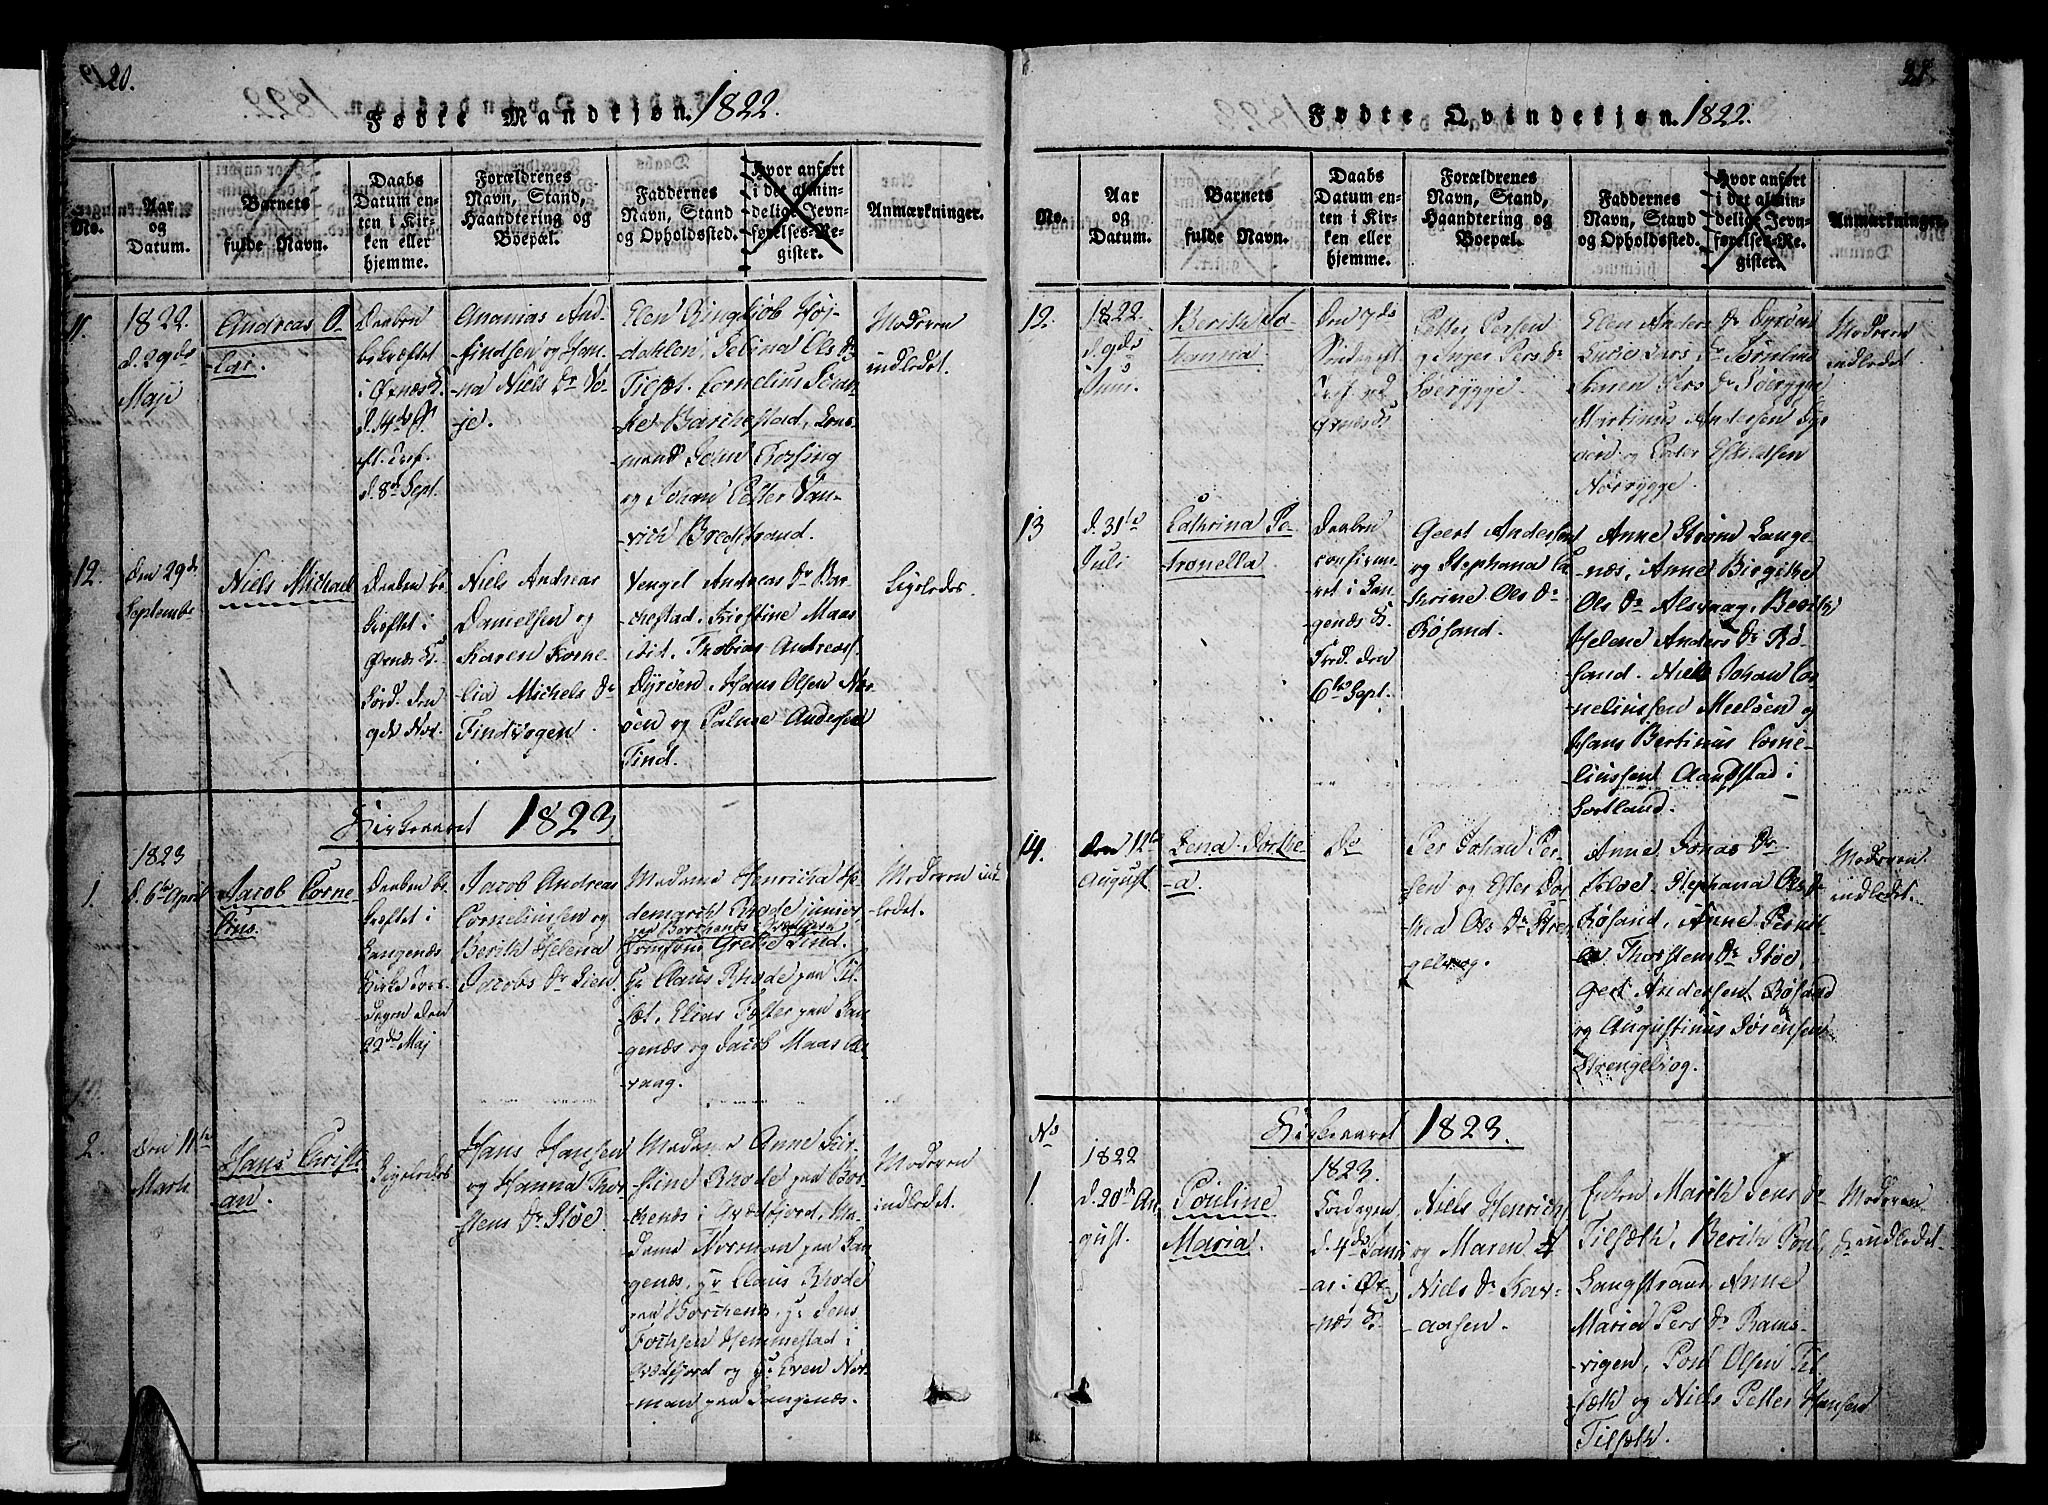 20.
Fødte Mandkjøn. 1822.
No.
Aar
og
Datum.
Barnets
fulde Navn.
Daabs
Datum en-
ten i Kir-
ken eller
hjemme.
Forældrenes
Navn, Stand,
Haandtering og
Boepæl.
Faddernes
Navn, Stand
og Opholdssted.
Hvor anført
i det almin-
delige Jevn-
førelses-Re-
gister.
Anmærkninger.
11.
1822.
d. 29de
Maji
Andreas O-
Daaben
bekræftet
i Øxnæs K.
d. 14de
d. 8de Sept.
Ananias And-
findsen og Han-
na Niels Dr Vo-
je.
Elen Ringkjøb Høi-
dahlen, Selina Ols Dr
Cornelius
Barchestad, Lens-
mand John Rossing
og Johan Petter
Bredstrand.
Moderen
indledet.
12.
den 29de
Septembr
Niels Michael
Daaben be-
kræftet i
Øxnæs K.
den
9de Nov.
Niels Andreas
Danielsen og
Karen Korne-
lia Michels Dr
Findvogen
Vengel Andreas Dr Bar-
chestad, Kirstine Maas
ibid, Thobias Andreas.
Dyrøen, Hans Olsen
og Palme Andersen
Tind.
Ligeledes.
Kirkeaaret 1823
1.
1823
d. 6te April
Jacob Corne-
lius.
Daaben be-
kræftet i
Langenæs
Kirke
dagen den
22de Maj
Jacob Andreas
Corneliussen og
Berith Helena
Jacobs Dr Lien
Madame Henricha
Rhode junior
paa Borchenes
Jomfrue Grethe Lind.
Hr Claus Rhode paa Til-
set, Elias Falster paa Lan-
genæs og Jacob Maas
vaag.
Moderen ind-
ledet.
2.
den 11te
Marti
Hans Christi-
an.
Ligeledes
Hans Hansen
og Hanna Thor-
stens Dr Støe
Madame Anne Kir-
stine Rhode paa Bor-
chenes i Qvædfjord, Ma-
dame Norman paa Lan-
genæs, Hr Claus Rhode
paa Borchenes, Hr Jens
Fochsen Hemmestad i
Qvædfjord og Hr Even Nor-
man paa Langenæs.
Moderen
indledet.
21.
Fødte Qvindekjøn. 1822.
No.
Aar
og
Datum.
Barnets
fulde Navn.
Daabs
Datum en-
ten i Kir-
ken eller
hjemme.
Forældrenes
Navn, Stand,
Haandtering og
Boepæl.
Faddernes
Navn, Stand
og Opholdssted.
Hvor anført
i det almin-
delige Jevn-
førelses-Re-
gister.
Anmærkninger.
12.
1822.
d. 9de
Juni
Berith Jo-
hanna
Den 7de
Øxnæs K
Petter Persen
og Inger Pers Dr
Elen Anders Dr Dyrøen
Lucie Lars Dr
Maren Pers Dr
Martinus Andersen
og Peder Eskildsen
Moderen
indledet
13
d. 31te
Juli
Cathrina Pe-
tronella
Daaben
confirme-
ret i Lan-
genæs K.
den
6te Sept.
Geert Andersen
og Stephana Ca-
thrine Ols Dr
Røsand.
Anne Strøm Lange-
næs, Anne Birgithe
Ols Dr Alsvaag, Berith
Helene Anders Dr Rø-
sand. Niels Johan Cor-
neliussen Meeløen og
Hans Bertinus Corne-
liussen Aandstad i
Sortland.
14.
den 12te
August
Lena Dorthe-
a.
Do
Per Johan Per-
sen og Ester Dor-
thea Ols Dr Stren-
gelvog.
Anne Jonas Dr
Støe, Stephana Ols Dr
Røsand, Anne Pernil-
la Thorstens Dr Støe,
Gert Andersen Røsand
og Augustinus Sørensen
Strengelvog.
Moderen
indledet.
No
Kirkeaaret 1823.
1.
1822
d. 20de Au-
gust.
Pouline
Maria.
1823.
Løverdagen
d. 4de Janu-
ar i Øx-
næs K.
Niels Henrich
og Maren
Niels Dr Kav-
aasen.
Enken Marith Jens Dr
Tilsæth, Berith Pouls Dr
Langstrand, Anne
Maria Pers Dr Rams-
vigen, Poul Olsen Til-
sæth og Niels Petter Hansen
Tilsæth.
Moderen
indledet.